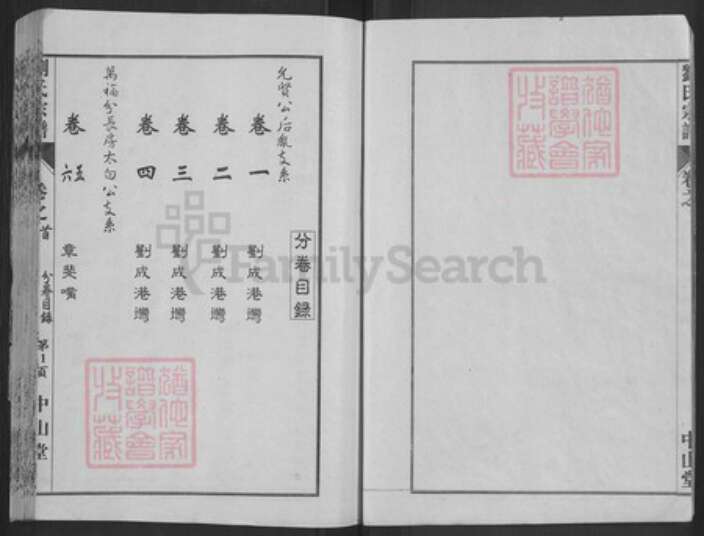 劉氏宗譜
卷之首
中山堂
分卷目錄
允賢公后嚴支系
卷一 劉成港灣
卷二 劉成港灣
卷三 劉成港灣
卷四 劉成港灣
萬福分長房太白公支系
卷六 章棐嘴
劉氏宗譜 卷之首 分卷目錄 第1頁 中山堂
FamilySearch